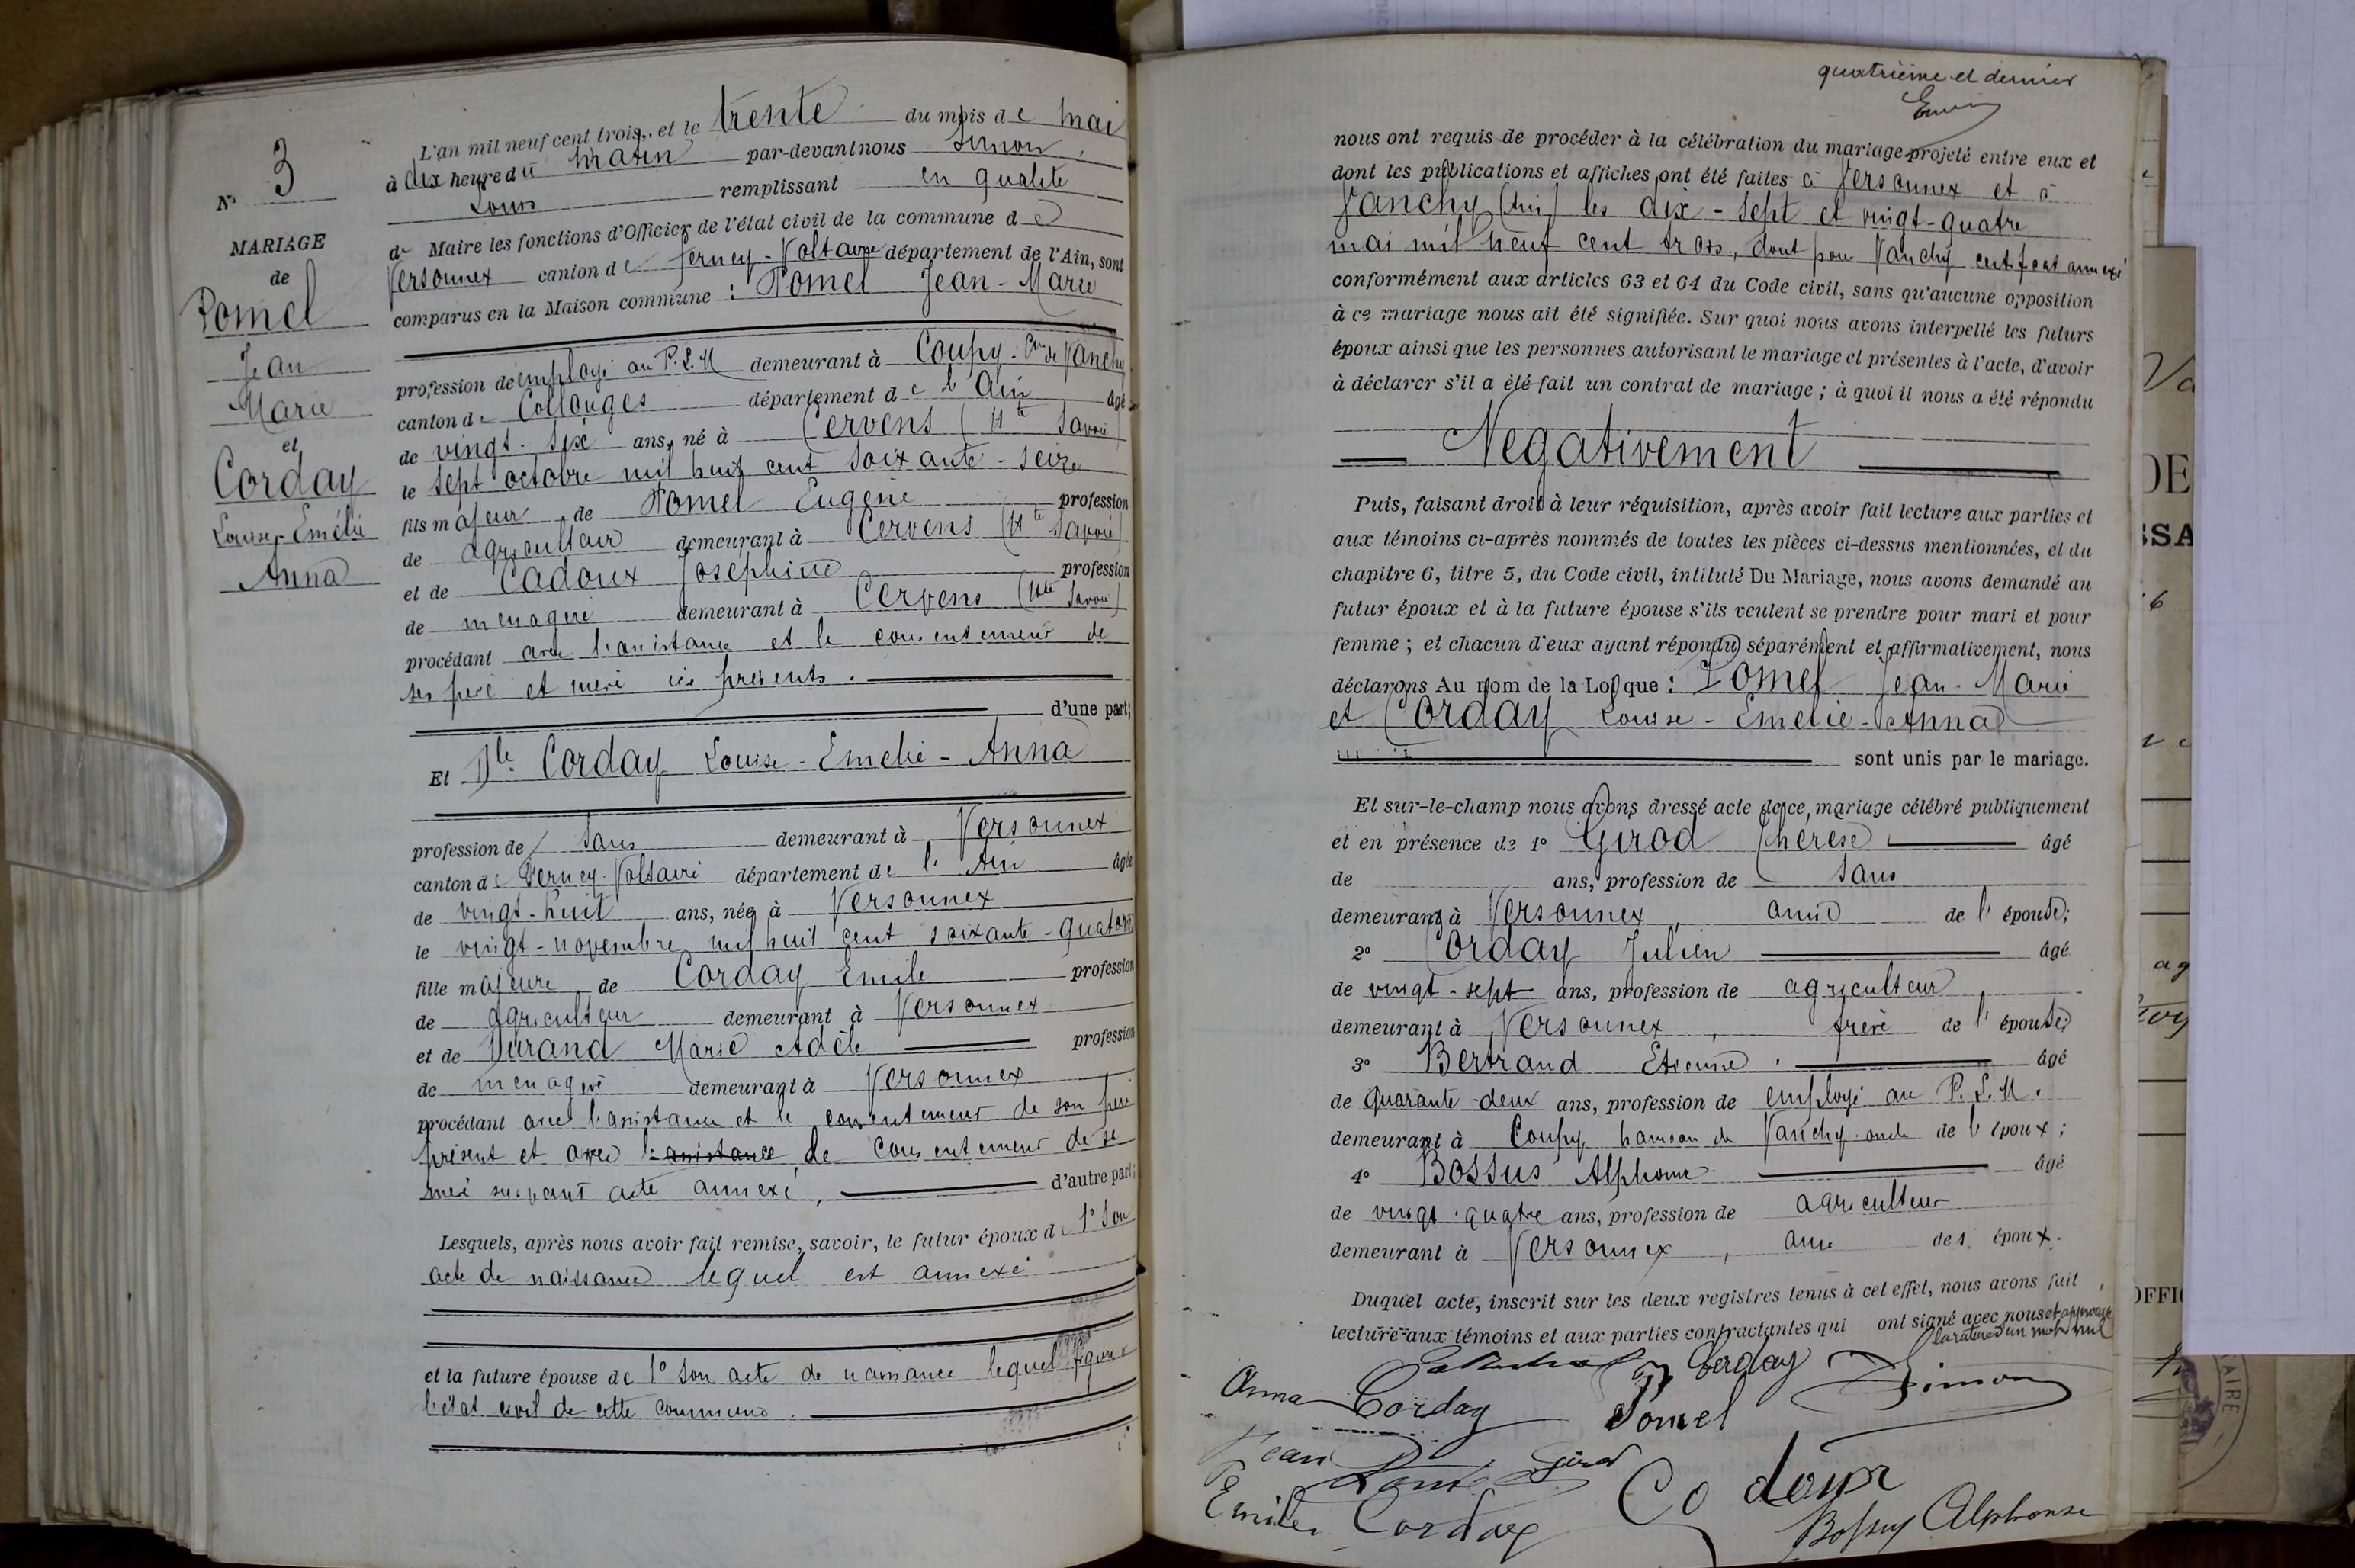 N° 3
MARIAGE
de
Pomel
Jean
Marie
et
Corday
Louise-Emélie
Anna
L'an mil neuf cent trois, et le trente du mois de mai
à dix heure du matin par-devant nous Simon
Louis remplissant en qualité
de Maire les fonctions d'Officier de l'état civil de la commune de
Versonnex canton de Ferney-Voltaire département de l'Ain, sont
comparus en la Maison commune : Pomel Jean-Marie
profession de employé au P.L.M demeurant à Coupy - Cne de Vanchy
canton de Collonges département de l'Ain âgé
de vingt-six ans, né à Cervens (Hte Savoie)
le sept octobre mil huit cent soixante-seize
fils majeur de Pomel Eugène profession
de agriculteur demeurant à Cervens (Hte Savoie)
et de Cadoux Joséphine profession
de ménagère demeurant à Cervens (Hte Savoie)
procédant avec l'assistance et le consentement de
ses père et mère ici présents.
d'une part;
Et Dlle Corday Louise-Emelie-Anna
profession de sans demeurant à Versonnex
canton de Ferney-Voltaire département de l'Ain âgée
de vingt-huit ans, née à Versonnex
le vingt-novembre mil huit cent soixante-quatorze
fille majeure de Corday Emile profession
de agriculteur demeurant à Versonnex
et de Durand Marie Adèle profession
de ménagère demeurant à Versonnex
procédant avec l'assistance et le consentement de son père
présent et avec l'assistance de consentement de sa
mère suivant acte annexé, d'autre part;
Lesquels, après nous avoir fait remise, savoir, le futur époux de 1° Son
acte de naissance lequel est annexé
et la future épouse de 1° Son acte de naissance lequel figure
l'état civil de cette commune.
quatrième et dernier
nous ont requis de procéder à la célébration du mariage projeté entre eux et
dont les publications et affiches ont été faites à Versonnex et à
Vanchy (Ain) les dix-sept et vingt-quatre
mai mil neuf cent trois, dont pour Vanchy certificat annexé
conformément aux articles 63 et 64 du Code civil, sans qu'aucune opposition
à ce mariage nous ait été signifiée. Sur quoi nous avons interpellé les futurs
époux ainsi que les personnes autorisant le mariage et présentes à l'acte, d'avoir
à déclarer s'il a été fait un contrat de mariage ; à quoi il nous a été répondu
Négativement
Puis, faisant droit à leur réquisition, après avoir fait lecture aux parties et
aux témoins ci-après nommés de toutes les pièces ci-dessus mentionnées, et du
chapitre 6, titre 5, du Code civil, intitulé Du Mariage, nous avons demandé au
futur époux et à la future épouse s'ils veulent se prendre pour mari et pour
femme ; et chacun d'eux ayant répondu séparément et affirmativement, nous
déclarons Au nom de la Loi que : Pomel Jean-Marie
et Corday Louise-Emelie-Anna
sont unis par le mariage.
Et sur-le-champ nous avons dressé acte de ce mariage célébré publiquement
et en présence de 1° Girod Thérèse âgé
de ans, profession de sans
demeurant à Versonnex, amie de l'épouse;
2° Corday Julien âgé
de vingt-sept ans, profession de agriculteur
demeurant à Versonnex, frère de l'épouse;
3° Bertrand Etienne âgé
de quarante-deux ans, profession de employé au P.L.M.
demeurant à Coupy hameau de Vanchy oncle de l'époux;
4° Bossus Alphonse âgé
de vingt-quatre ans, profession de agriculteur
demeurant à Versonnex, ami des époux.
Duquel acte, inscrit sur les deux registres tenus à cet effet, nous avons fait
lecture aux témoins et aux parties contractantes qui ont signé avec nous et approuvé
la rature d'un mot nul
Corday
Simon
Anna Corday
Pomel
Jean
Girod
Cadoux
Emile Corday
Bossus Alphonse